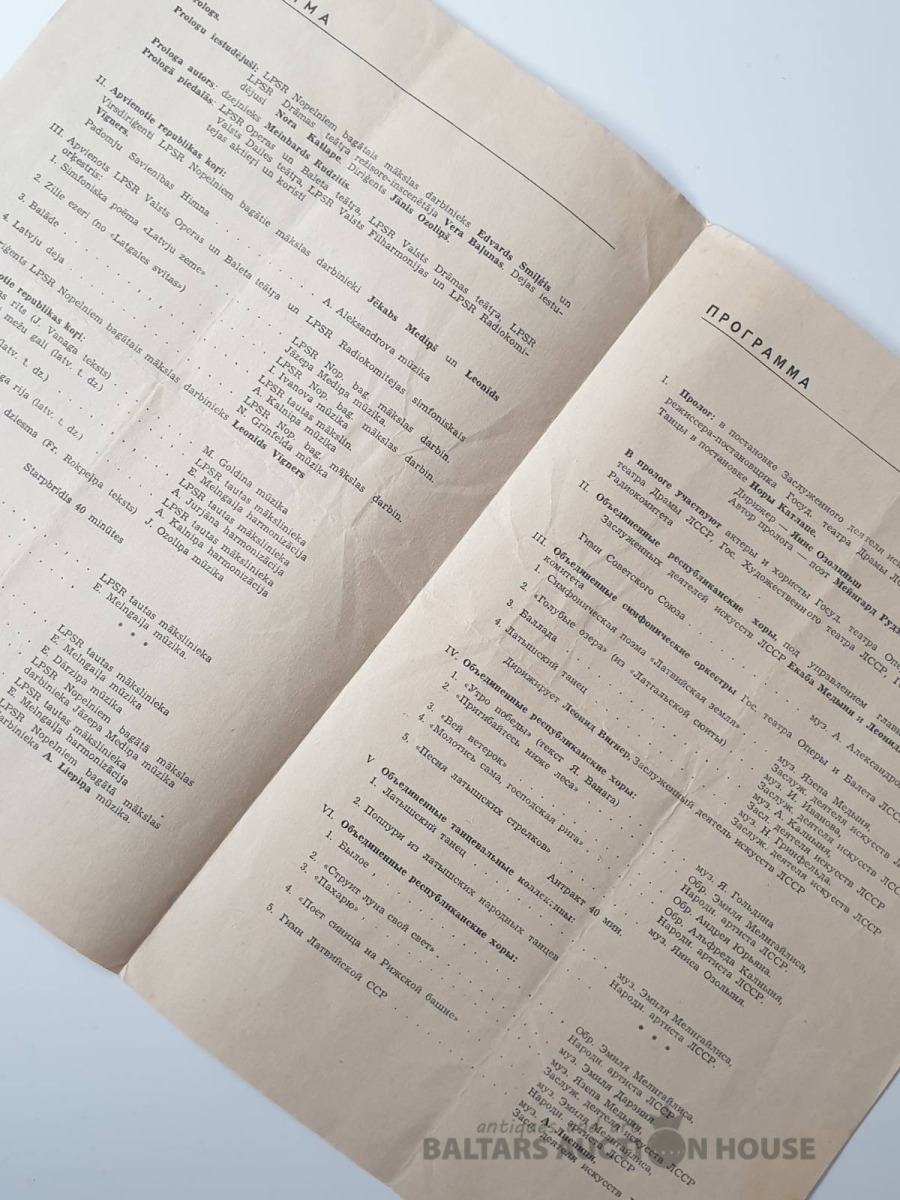 ММА
rologs.
Prologu iestudējuši: LPSR Nopelniem bagātais mākslas darbinieks Edvards Smiļģis un
LPSR Drāmas teātra režisore-inscenētāja Vera Baļunas. Dejas iestu-
dējusi Nora Katlape. Diriģents Jānis Ozoliņš.
Prologa autors: dzejnieks Meinhards Rudzītis.
Prologā piedalās: LPSR Operas un Baleta teātra, LPSR Valsts Drāmas teātra, LPSR
Valsts Dailes teātra, LPSR Valsts Filharmonijas un LPSR Radiokomi-
tejas aktieri un koristi
II. Apvienotie republikas koŗi:
Virsdiriģenti LPSR Nopelniem bagātie mākslas darbinieki Jēkabs Mediņš un Leonids
Vigners.
Padomju Savienības Himna A. Aleksandrova mūzika
III. Apvienots LPSR Valsts Operas un Baleta teātra un LPSR Radiokomitejas simfoniskais
orķestris:
1. Simfoniska poēma «Latvju zeme» LPSR Nop. bag. mākslas darbin.
Jāzepa Mediņa mūzika.
2. Zilie ezeri (no «Latgales svītas») I. Ivanova mūzika
LPSR Nop. bag. mākslas darbin.
3. Balāde A. Kalniņa mūzika
LPSR tautas mākslin.
4. Latvju deja N. Grīnfelda mūzika
LPSR Nop. bag. mākslas darbin.
riģents LPSR Nopelniem bagātais mākslas darbinieks Leonids Vigners
otie republikas koŗi:
as rīts (J. Vanaga teksts) M. Goldina mūzika
mežu gali (latv. t. dz.) LPSR tautas mākslinieka
E. Melngaiļa harmonizācija
(latv. t. dz.) LPSR tautas mākslinieka
A. Jurjāna harmonizācija
ga rija (latv. t. dz.) LPSR tautas mākslinieka
A. Kalniņa harmonizācija
dziesma (Fr. Rokpeļņa teksts) J. Ozoliņa mūzika
Starpbrīdis 40 minūtes
LPSR tautas mākslinieka
E. Melngaiļa mūzika.
* * *
LPSR tautas mākslinieka
E. Melngaiļa mūzika
E. Dārziņa mūzika
LPSR Nopelniem bagātā mākslas
darbinieka Jāzepa Mediņa mūzika
LPSR tautas mākslinieka
E. Melngaiļa harmonizācija
LPSR Nopelniem bagātā mākslas
darbinieka A. Liepiņa mūzika.
ПРОГРАММА
I. Пролог: в постановке Заслуженного деятеля иск
режиссера-постановщика Госуд. театра Драмы ЛС
Танцы в постановке Норы Катлапе.
Дирижер — Янис Озолиньш
Автор пролога — поэт Мейнгард Рудз
В прологе участвуют актеры и хористы Госуд. театра Опе
театра Драмы ЛССР, Гос. Художественного театра ЛССР, Го
Радиокомитета
II. Объединенные республиканские хоры, под управлением главны
Заслуженных деятелей искусств ЛССР Екаба Медыня и Леонида
Гимн Советского Союза муз. А. Александров
III. Объединенные симфонические оркестры Гос. театра Оперы и Балета ЛССР
комитета
1. Симфоническая поэма «Латвийская земля» муз. Язепа Медыня,
Заслуж. деятеля искусств
2. «Голубые озера» (из «Латгальской сюиты) муз. И. Иванова,
Засл. деятеля искусств ЛСС
3. Баллада муз. А. Калныня,
Засл. деятеля искусств ЛСС
4. Латышский танец муз. Н. Гринфельда.
Заслуж. деятеля искусств ЛССР
Дирижирует Леонид Вигнер, Заслуженный деятель искусств ЛССР
IV. Объединенные республиканские хоры:
1. «Утро победы» (текст Я. Ванага) муз. Я. Гольдина
2. «Пригибайтесь ниже леса» Обр. Эмиля Мелнгайлиса,
Народн. артиста ЛССР.
3. «Вей ветерок» Обр. Андрея Юрьяна.
4. «Молотись сама, господская рига» Обр. Альфреда Калныня,
Народн. артиста ЛССР.
5. «Песня латышских стрелков» муз. Яниса Озолыня.
Антракт 40 мин.
V Объединенные танцевальные коллективы:
1. Латышский танец муз. Эмиля Мелнгайлиса,
Народн. артиста ЛССР.
2. Поппури из латышских народных танцев * * *
VI. Объединенные республиканские хоры:
1. Былое Обр. Эмиля Мелнгайлиса,
Народн. артиста ЛССР
2. «Струит луна свой свет» муз. Эмиля Дарзиня
3. «Пахарю» муз. Язепа Медыня,
Заслуж. деятеля искусств ЛССР
4. «Поет синица на Рижской башне» муз. Эмиля Мелнгайлиса,
Народн. артиста ЛССР
5. Гимн Латвийской ССР муз. А. Лиепиня,
деятеля искусств
antiques and art
BALTARS AUCTION HOUSE